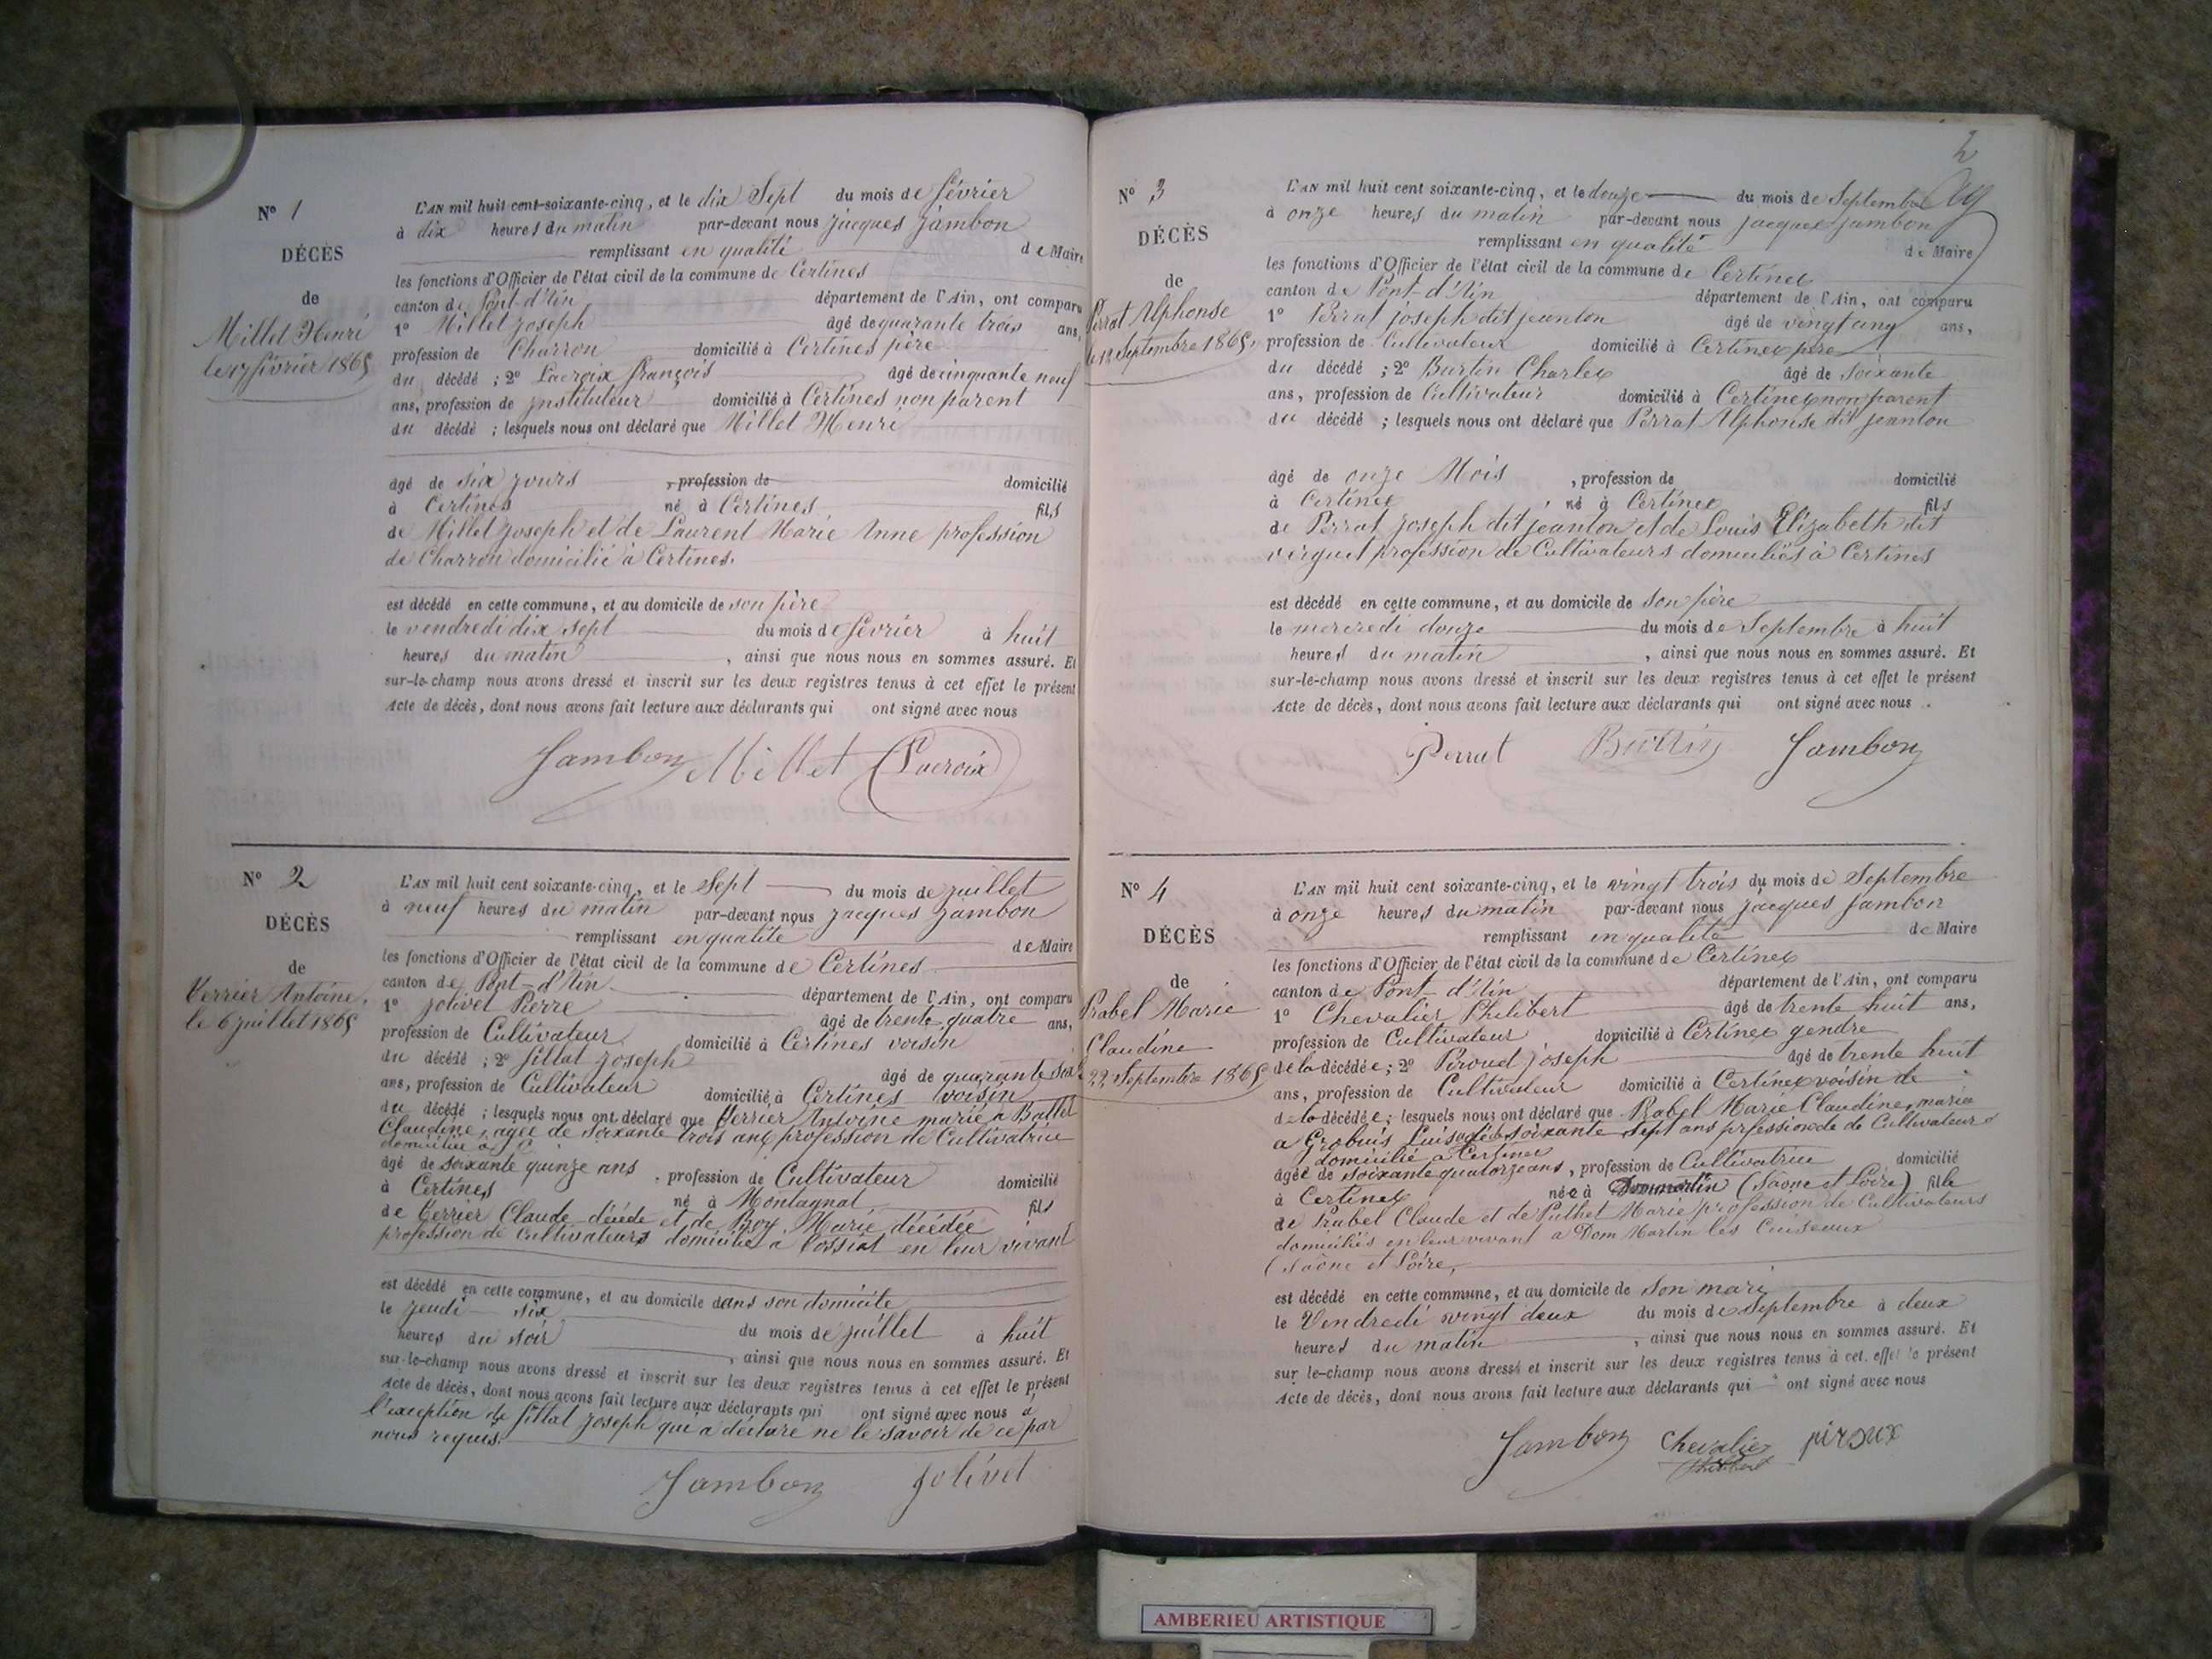 N° 1
DÉCÈS
de
Millet Henri
le 17 février 1865
L'AN mil huit cent soixante-cinq, et le dix Sept du mois de février
à dix heures du matin par-devant nous jacques Jambon
remplissant en qualité de Maire
les fonctions d'Officier de l'état civil de la commune de Certines
canton de Pont-d'Ain département de l'Ain, ont comparu
1° Millet joseph âgé de quarante trois ans,
profession de Charron domicilié à Certines père
du décédé ; 2° Lacroix françois âgé de cinquante neuf
ans, profession de instituteur domicilié à Certines non parent
du décédé ; lesquels nous ont déclaré que Millet Henri
âgé de six jours , profession de domicilié
à Certines né à Certines fils
de Millet joseph et de Laurent Marie Anne profession
de Charron domicilié à Certines.
est décédé en cette commune, et au domicile de son père
le vendredi dix sept du mois de février à huit
heures du matin , ainsi que nous nous en sommes assuré. Et
sur-le-champ nous avons dressé et inscrit sur les deux registres tenus à cet effet le présent
Acte de décès, dont nous avons fait lecture aux déclarants qui ont signé avec nous
Jambon Millet Lacroix
N° 2
DÉCÈS
de
Verrier Antoine,
le 6 juillet 1865
L'AN mil huit cent soixante-cinq, et le Sept du mois de juillet
à neuf heures du matin par-devant nous jacques Jambon
remplissant en qualité de Maire
les fonctions d'Officier de l'état civil de la commune de Certines
canton de Pont-d'Ain département de l'Ain, ont comparu
1° jolivet Pierre âgé de trente quatre ans,
profession de Cultivateur domicilié à Certines voisin
du décédé ; 2° fillat joseph âgé de quarante six
ans, profession de Cultivateur domicilié à Certines voisin
du décédé ; lesquels nous ont déclaré que Verrier Antoine marié a
Claudine, agée de soixante trois ans profession de Cultivatrice
domiciliée à
âgé de soixante quinze ans , profession de Cultivateur domicilié
à Certines né à Montagnat fils
de Verrier Claude décédé et de Roy Marie décédée
profession de cultivateurs domiciliés a Tossiat en leur vivant
est décédé en cette commune, et au domicile dans son domicile
le jeudi six du mois de juillet à huit
heures du soir , ainsi que nous nous en sommes assuré. Et
sur-le-champ nous avons dressé et inscrit sur les deux registres tenus à cet effet le présent
Acte de décès, dont nous avons fait lecture aux déclarants qui ont signé avec nous a
l'exception de fillat joseph qui a déclaré ne le savoir de ce par
nous requis.
Jambon jolivet
2
N° 3
DÉCÈS
de
Perrat Alphonse
le 12 Septembre 1865,
L'AN mil huit cent soixante-cinq, et le douze du mois de Septembre
à onze heures du matin par-devant nous jacques Jambon
remplissant en qualité de Maire
les fonctions d'Officier de l'état civil de la commune de Certines
canton de Pont-d'Ain département de l'Ain, ont comparu
1° Perrat joseph dit jeanton âgé de vingt cinq ans,
profession de Cultivateur domicilié à Certines père
du décédé ; 2° Burtin Charles âgé de soixante
ans, profession de Cultivateur domicilié à Certines non parent
du décédé ; lesquels nous ont déclaré que Perrat Alphonse dit jeanton
âgé de onze Mois , profession de domicilié
à Certines né à Certines fils
de Perrat joseph dit jeanton et de Louis Elizabeth dit
verguet profession de Cultivateurs domiciliés à Certines
est décédé en cette commune, et au domicile de son père
le mercredi douze du mois de Septembre à huit
heures du matin , ainsi que nous nous en sommes assuré. Et
sur-le-champ nous avons dressé et inscrit sur les deux registres tenus à cet effet le présent
Acte de décès, dont nous avons fait lecture aux déclarants qui ont signé avec nous .
Perrat Burtin Jambon
N° 4
DÉCÈS
de
Prabel Marie
Claudine
22 Septembre 1865
L'AN mil huit cent soixante-cinq, et le vingt trois du mois de Septembre
à onze heures du matin par-devant nous jacques Jambon
remplissant en qualité de Maire
les fonctions d'Officier de l'état civil de la commune de Certines
canton de Pont-d'Ain département de l'Ain, ont comparu
1° Chevalier Philibert âgé de trente huit ans,
profession de Cultivateur domicilié à Certines gendre
de la décédée ; 2° Piroud joseph âgé de trente huit
ans, profession de Cultivateur domicilié à Certines voisin de
de la décédée ; lesquels nous ont déclaré que Prabel Marie Claudine, mariée
a soixante sept ans de Cultivateur
domicilié a Certines
âgée de soixante quatorze ans , profession de Cultivatrice domicilié
à Certines née à Dommartin (Saône et Loire) fille
de Prabel Claude et de Marie profession de Cultivateurs
domiciliés en leur vivant a Dom Martin les Cuiseaux
(Saône et Loire,
est décédé en cette commune, et au domicile de son mari
le Vendredi vingt deux du mois de Septembre à deux
heures du matin , ainsi que nous nous en sommes assuré. Et
sur-le-champ nous avons dressé et inscrit sur les deux registres tenus à cet effet le présent
Acte de décès, dont nous avons fait lecture aux déclarants qui ont signé avec nous
Jambon Chevalier piroux
AMBERIEU ARTISTIQUE